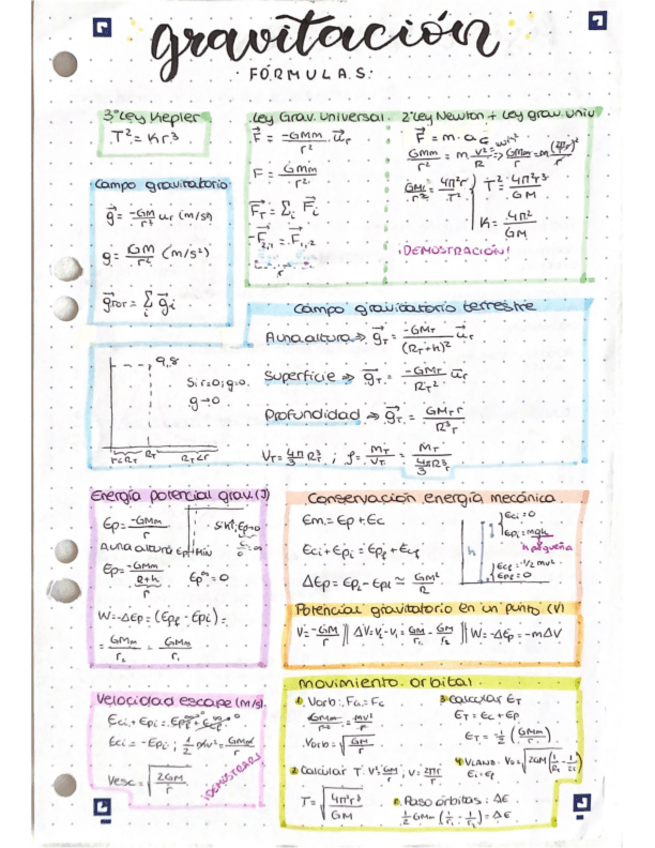 gravitación
FÓRMULAS:
3ª Ley Kepler
T² = Kr³
Ley Grav. Universal
F⃗ = -GMm/r² · u⃗r
F = GMm/r²
F⃗T = Σi F⃗i
-F⃗2,1 = F⃗1,2
r
2ª Ley Newton + Ley grav. univ
F⃗ = m · a
GMm/r² = m v²/R => GMm/r = m
GM/r² = 4π²r/T²
T² = 4π²r³/GM
K = 4π²/GM
¡DEMOSTRACIÓN!
Campo gravitatorio
g⃗ = -GM/r² ur (m/s²)
g = GM/r² (m/s²)
g⃗TOT = Σi g⃗i
Campo gravitatorio terrestre
A una altura => g⃗T = -GMT/(RT+h)² u⃗r
Superficie => g⃗T = -GMT/RT² u⃗r
Profundidad => g⃗T = GMT r/R³T
VT = 4π/3 R³T ; ρ = MT/VT = MT/(4/3 πR³T)
9,8
Si r=0; g=0.
g→0
r<RT RT RT<r
Energía potencial grav. (J)
Ep = -GMm/r
A una altura
Ep = -GMm/(R+h)
r
Ep∞ = 0
W = -ΔEp = (Epf - Epi) =
= GMm/r2 - GMm/r1
Conservación energía mecánica
Em = Ep + Ec
Eci + Epi = Epf + Ecf
ΔEp = Ep2 - Ep1 ≃ GM²/R
h
Eci = 0
Epi = mgh
h pequeña
Ecf = 1/2 mv²
Epf = 0
Potencial gravitatorio en un punto (V)
V = -GM/r || ΔV = V2 - V1 = GM/r1 - GM/r2 || W = -ΔEp = -mΔV
Velocidad escape (m/s)
Eci + Epi = Epf + Ecf
Eci = -Epi ; 1/2 mv² = GMm/r
Vesc = √(2GM/r)
¡DEMOSTRAR!
Movimiento orbital
1. Vorb: FG = Fc
GMm/r² = mv²/r
Vorb = √(GM/r)
2. Calcular T: V² = GM/r ; V = 2πr/T
T = √(4π²r³/GM)
3. Calcular ET
ET = Ec + Ep
ET = -1/2 (GMm/r)
4. VLANZ:
Ei = Ef
Paso órbitas: ΔE
1/2 GMm (1/r1 - 1/r2) = ΔE